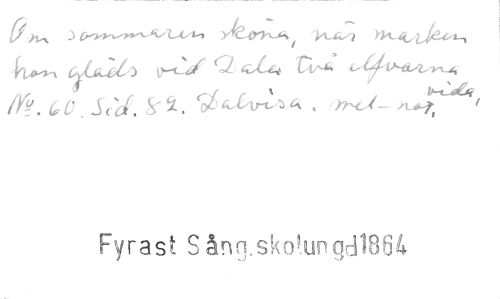 Om sommaren sköna, när marken
hon gläds vid Dala två elfvarna
vida,
No. 60. Sid. 82. Dalvisa. mel-not.
Fyrast Sång.skolungd1864